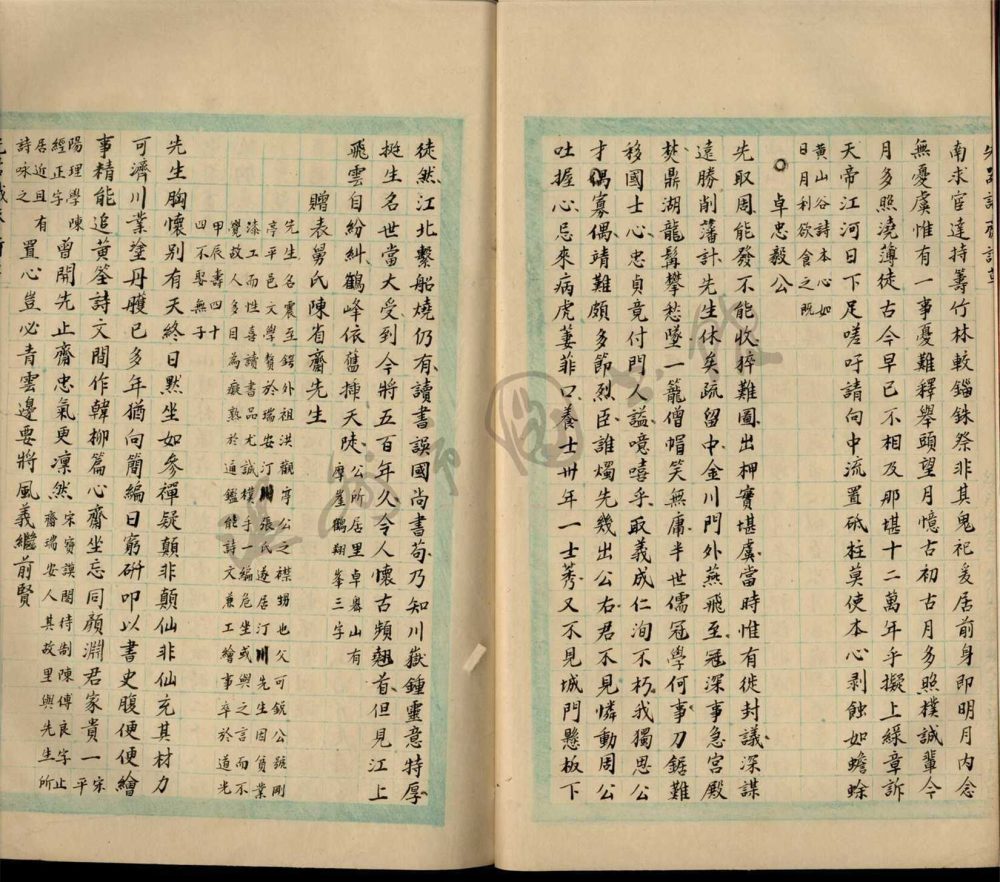 南求宦達持籌竹林較錙銖祭非其鬼祀爰居前身即明月內念
無憂虞惟有一事憂難釋舉頭望月憶古初古月多照樸誠輩今
月多照澆薄徒古今早已不相及那堪十二萬年乎擬上綠章訴
天帝江河日下足嗟吁請向中流置砥柱莫使本心剥蝕如蟾蜍
黃山谷詩本心如
日月利欲食之既
卓忠毅公
先取周能發不能收猝難圖出柙實堪虞當時惟有徙封議深謀
遠勝削藩計先生休矣疏留中金川門外燕飛至冠深事急宮殿
焚鼎湖龍髯攀愁墜一籠僧帽笑無庸半世儒冠學何事刀鋸難
移國士心忠貞竟付門人謚噫嘻乎取義成仁洵不朽我獨思公
才偶寡偶靖難頗多節烈臣誰燭先幾出公右君不見憐動周公
吐握心忌來病虎萋菲口養士卅年一士莠又不見城門懸板下
徒然江北繫船燒仍有讀書誤國尚書苟乃知川嶽鍾靈意特厚
挺生名世當大受到今將五百年久令人懷古頻翹首但見江上
飛雲自紛糾鶴峰依舊揷天陡
公所居里卓嶴山有
摩崖鶴翔峯三字
贈表舅氏陳省齋先生
先生名震至鍔外祖洪觀亭公之襟甥也父可鋠公號剛
亭平邑文學贅於瑞安汀川張氏遂居汀川先生因貧業
漆工而性喜讀書品尤誠樸手一編危坐或與之言而不
覺故人多目為癡熟於通鑑能詩文兼工繪事卒於道光
甲辰壽四十
四不娶無子
先生胸懷别有天終日默坐如參禪疑顛非顛仙非仙充其材力
可濟川業塗丹雘已多年猶向簡編日窮硏叩以書史腹便便繪
事精能追黃筌詩文間作韓柳篇心齋坐忘同顏淵君家貴一
宋平
陽理學陳
經正字
曾開先止齋忠氣更凜然
宋寶謨閣待制陳傅良字止
齋瑞安人其故里與先生所
居近且有
詩咏之
置心豈必青雲邊要將風義繼前賢